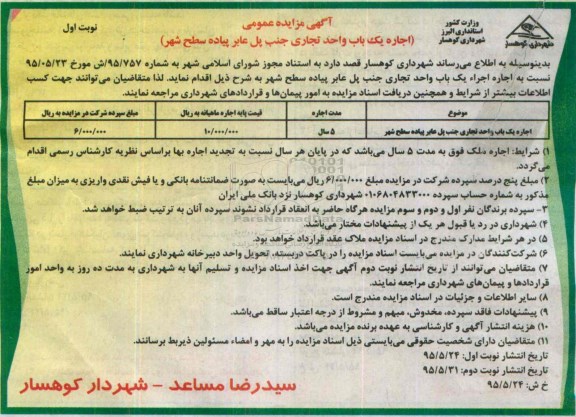 وزارت کشور
استانداری البرز
شهرداری کوهسار
شهرداری کوهسار
آگهی مزایده عمومی
نوبت اول
(اجاره یک باب واحد تجاری جنب پل عابر پیاده سطح شهر)
بدینوسیله به اطلاع می‌رساند شهرداری کوهسار قصد دارد به استناد مجوز شورای اسلامی شهر به شماره ۹۵/۷۵۷/ش مورخ ۹۵/۰۵/۲۳
نسبت به اجاره اجراء یک باب واحد تجاری جنب پل عابر پیاده سطح شهر به شرح ذیل اقدام نماید. لذا متقاضیان می‌توانند جهت کسب
اطلاعات بیشتر از شرایط و همچنین دریافت اسناد مزایده به امور پیمان‌ها و قراردادهای شهرداری مراجعه نمایند.
موضوع مدت اجاره قیمت پایه اجاره ماهیانه به ریال مبلغ سپرده شرکت در مزایده به ریال
اجاره یک باب واحد تجاری جنب پل عابر پیاده سطح شهر ۵ سال ۱۰/۰۰۰/۰۰۰ ۶/۰۰۰/۰۰۰
۱) شرایط: اجاره ملک فوق به مدت ۵ سال می‌باشد که در پایان هر سال نسبت به تجدید اجاره بها براساس نظریه کارشناس رسمی اقدام
می‌گردد.
۲) مبلغ پنج درصد سپرده شرکت در مزایده مبلغ ۶/۰۰۰/۰۰۰ ریال می‌بایست به صورت ضمانتنامه بانکی و یا فیش نقدی واریزی به میزان مبلغ
مذکور به شماره حساب سپرده ۰۱۰۶۸۰۴۸۳۳۰۰۰ شهرداری کوهسار نزد بانک ملی ایران
۳- سپرده برندگان نفر اول و دوم و سوم مزایده هرگاه حاضر به انعقاد قرارداد نشوند سپرده آنان به ترتیب ضبط خواهد شد.
۴) شهرداری در رد یا قبول هر یک از پیشنهادات مختار می‌باشد.
۵) در هر شرایط مدارک مندرج در اسناد مزایده ملاک عقد قرارداد خواهد بود.
۶) شرکت‌کنندگان در مزایده می‌بایست اسناد مزایده را در پاکت دربسته، تحویل واحد دبیرخانه شهرداری نمایند.
۷) متقاضیان می‌توانند از تاریخ انتشار نوبت دوم آگهی جهت اخذ اسناد مزایده و تسلیم آنها به شهرداری به مدت ده روز به واحد امور
قراردادها و پیمان‌های شهرداری مراجعه نمایند.
۸) سایر اطلاعات و جزئیات در اسناد مزایده مندرج است.
۹) پیشنهادات فاقد سپرده، مخدوش، مبهم و مشروط از درجه اعتبار ساقط می‌باشد.
۱۰) هزینه انتشار آگهی و کارشناسی به عهده برنده مزایده می‌باشد.
۱۱) متقاضیان دارای شخصیت حقوقی می‌بایستی ذیل اسناد مزایده را به مهر و امضاء مسئولین ذیربط برسانند.
تاریخ انتشار نوبت اول: ۹۵/۵/۲۴
تاریخ انتشار نوبت دوم: ۹۵/۵/۳۱
خ ش: ۹۵/۵/۲۴
سیدرضا مساعد - شهردار کوهسار